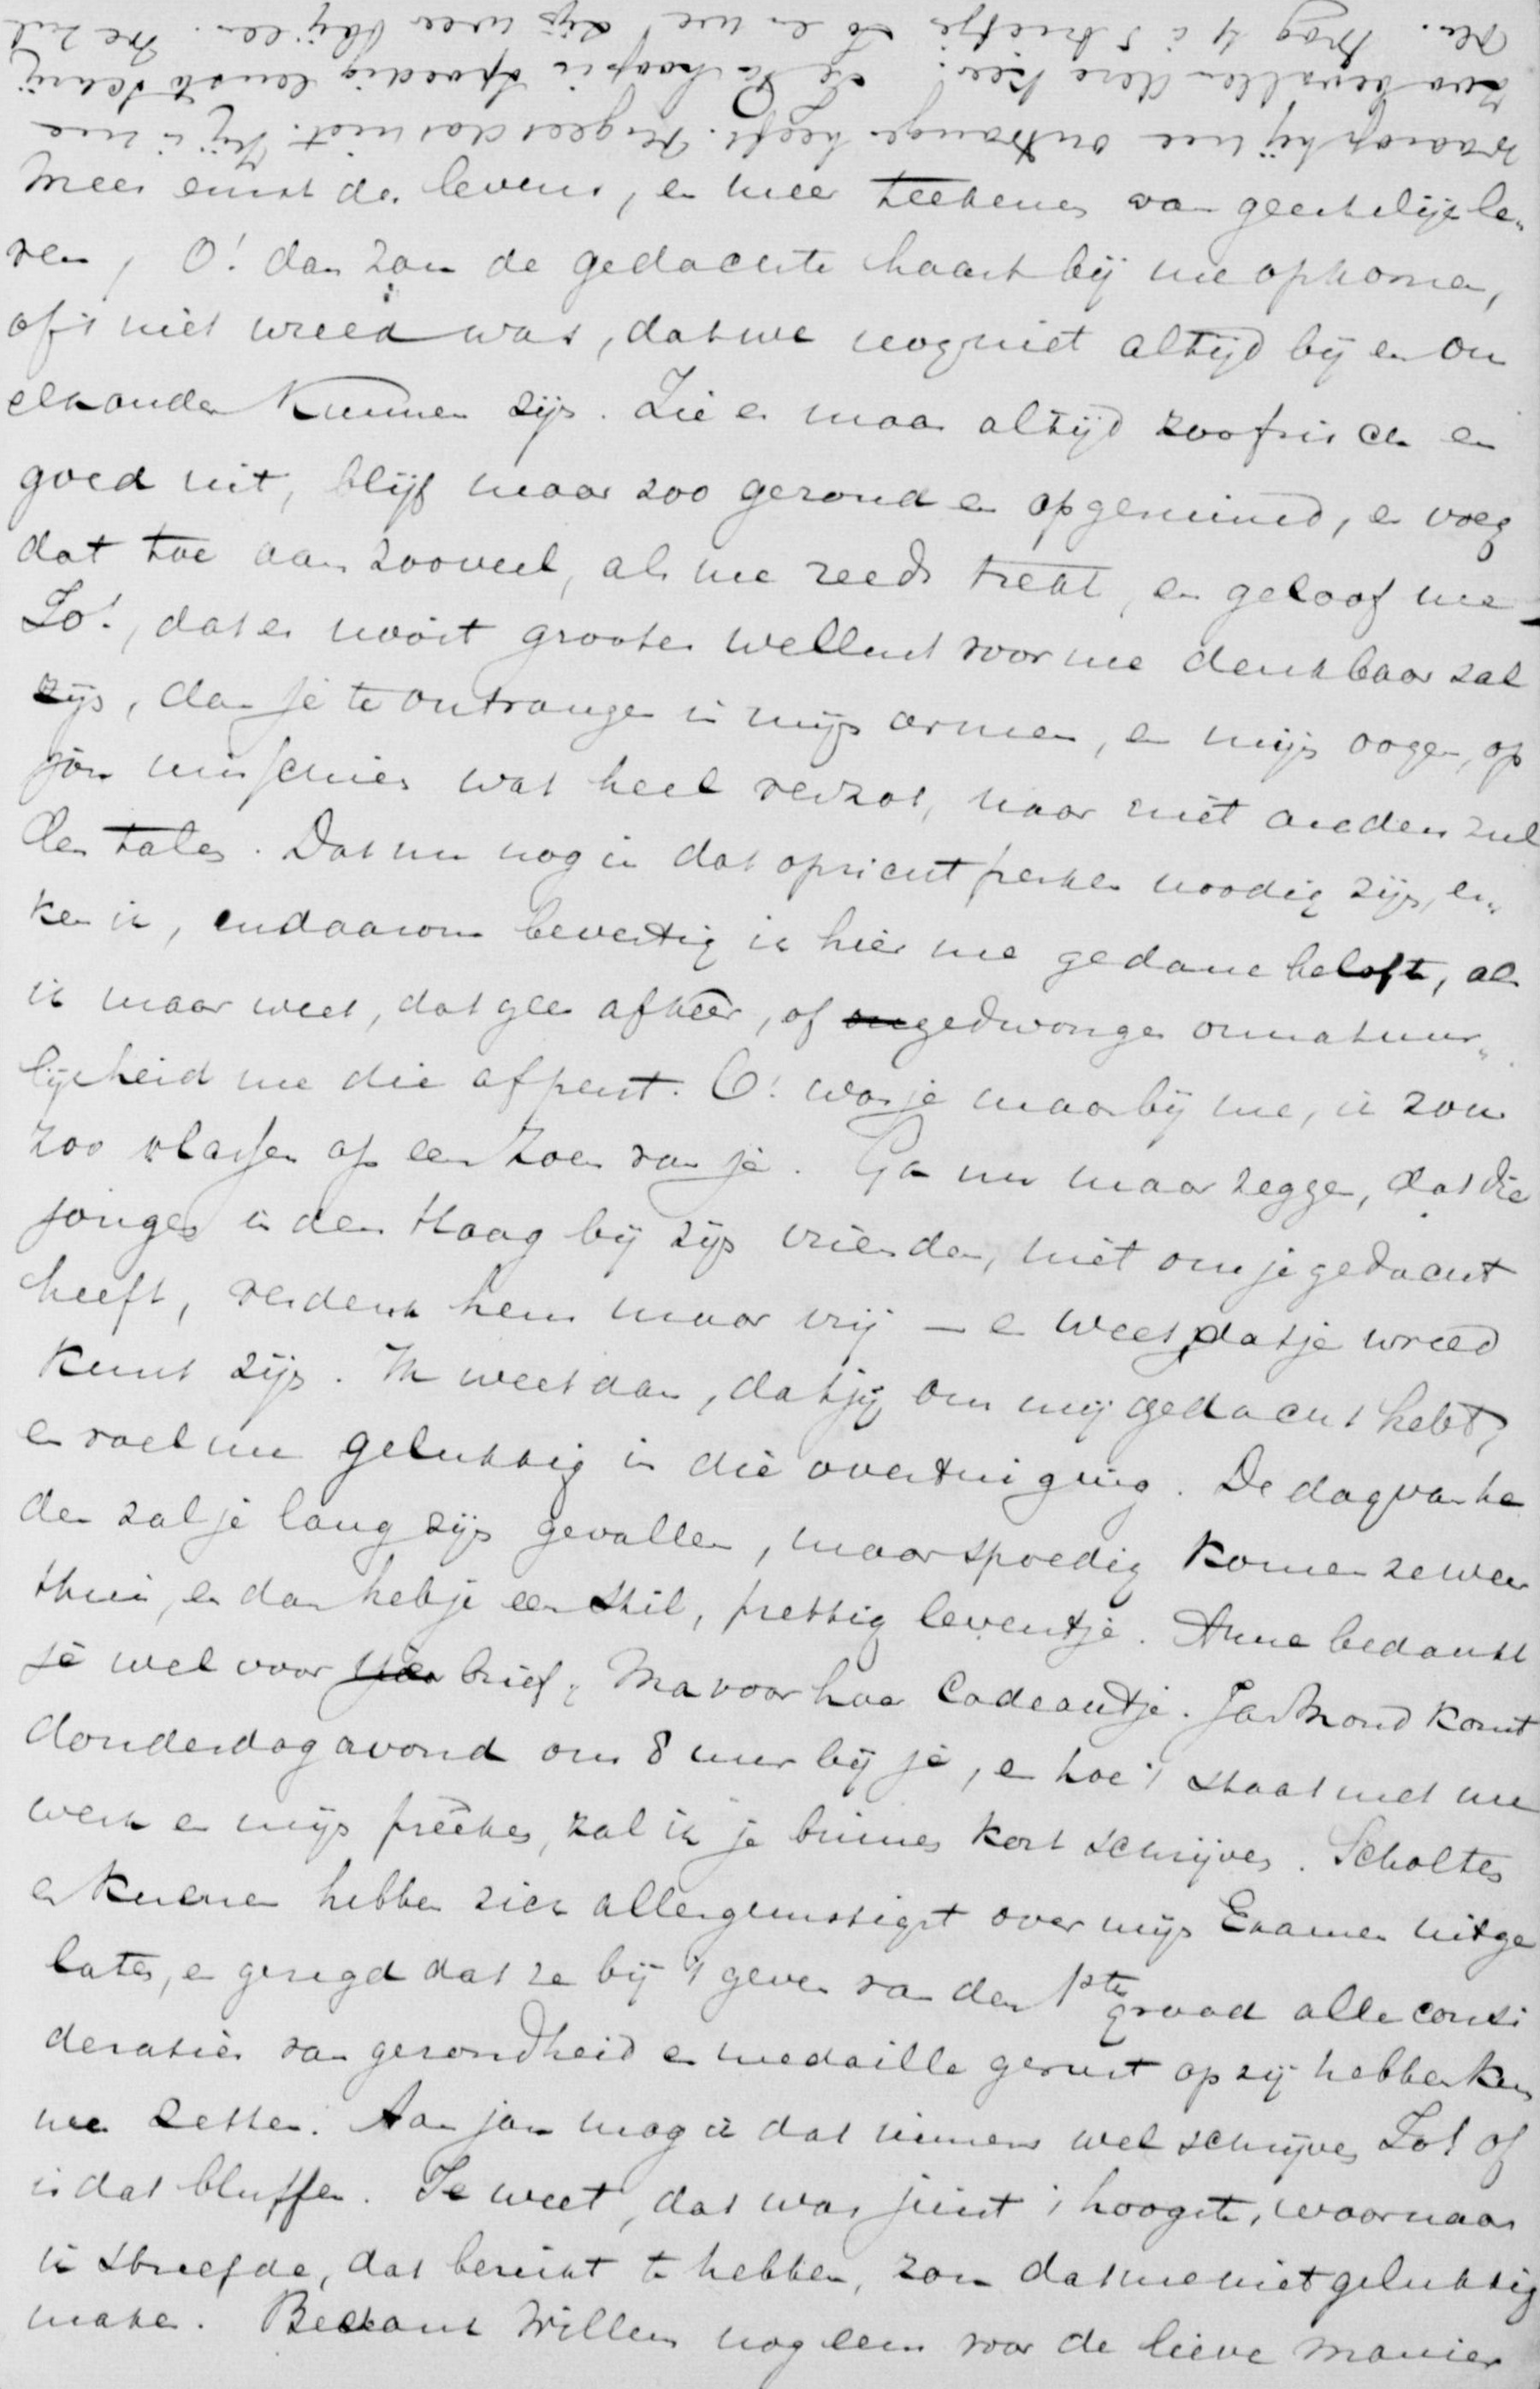 meer ernst des levens, en meer teekenen van geestelijk le„
ven, O! dan zou de gedachte haast bij me opkomen,
of 't niet wreed was, dat we nog niet altijd bij en om
elkander kunnen zijn. Zie er maar altijd zoo frisch en
goed uit, blijf maar zoo gezond en opgeruimd, en voeg
dat toe aan zooveel, als me reeds trekt, en geloof me
Lo!, dat er nooit grooter wellust voor me denkbaar zal
zijn, dan je te ontvangen in mijn armen, en mijn oogen, op
jou misschien wat heel verzot, naar niet anders zul
len talen. Dat me nog in dat opzicht perken noodig zijn, er„
ken ik, en daarom bevestig ik hier me gedane belofte, als
ik maar weet, dat geen afkeer, of gedwongen onnatuur„
lijkheid me die afperst. O! was je maar bij me, ik zou
zoo vlassen op een zoen van je. Ga nu maar zeggen, dat die
jongen in den Haag bij zijn vrienden, niet om je gedacht
heeft, verdenk hem maar vrij — en weet, dat je wreed
kunt zijn. Ik weet dan, dat jij om mij gedacht hebt,
en voel me gelukkig in die overtuiging. De dag van he
den zal je lang zijn gevallen, maar spoedig komen ze weer
thuis, en dan heb je een stil, prettig leventje. Anna bedankt
je wel voor brief, Ma voor haar Cadeautje. Jan komt
donderdag avond om 8 uur bij je, en hoe 't staat met me
werk en mijn preeken, zal ik je binnen kort schrijven. Scholten
en Kuenen hebben zich allergunstigst over mijn Examen uitge
laten, en gezegd dat ze bij 't geven van den 1sten graad alle consi
deratien van gezondheid en medaille gerust op zij hebben kun
nen zetten. Aan jou mag ik dat immers wel schrijven Lo! of
is dat bluffen. Je weet, dat was juist 't hoogste, waarnaar
ik streefde, dat bereikt te hebben, zou dat me niet gelukkig
maken. Bedank Willem nog eens voor de lieve manier
waarop hij me ontvangen heeft. Vergeet dat niet. Hij is me
zoo bevallen deze keer. Ik hoop spoedig